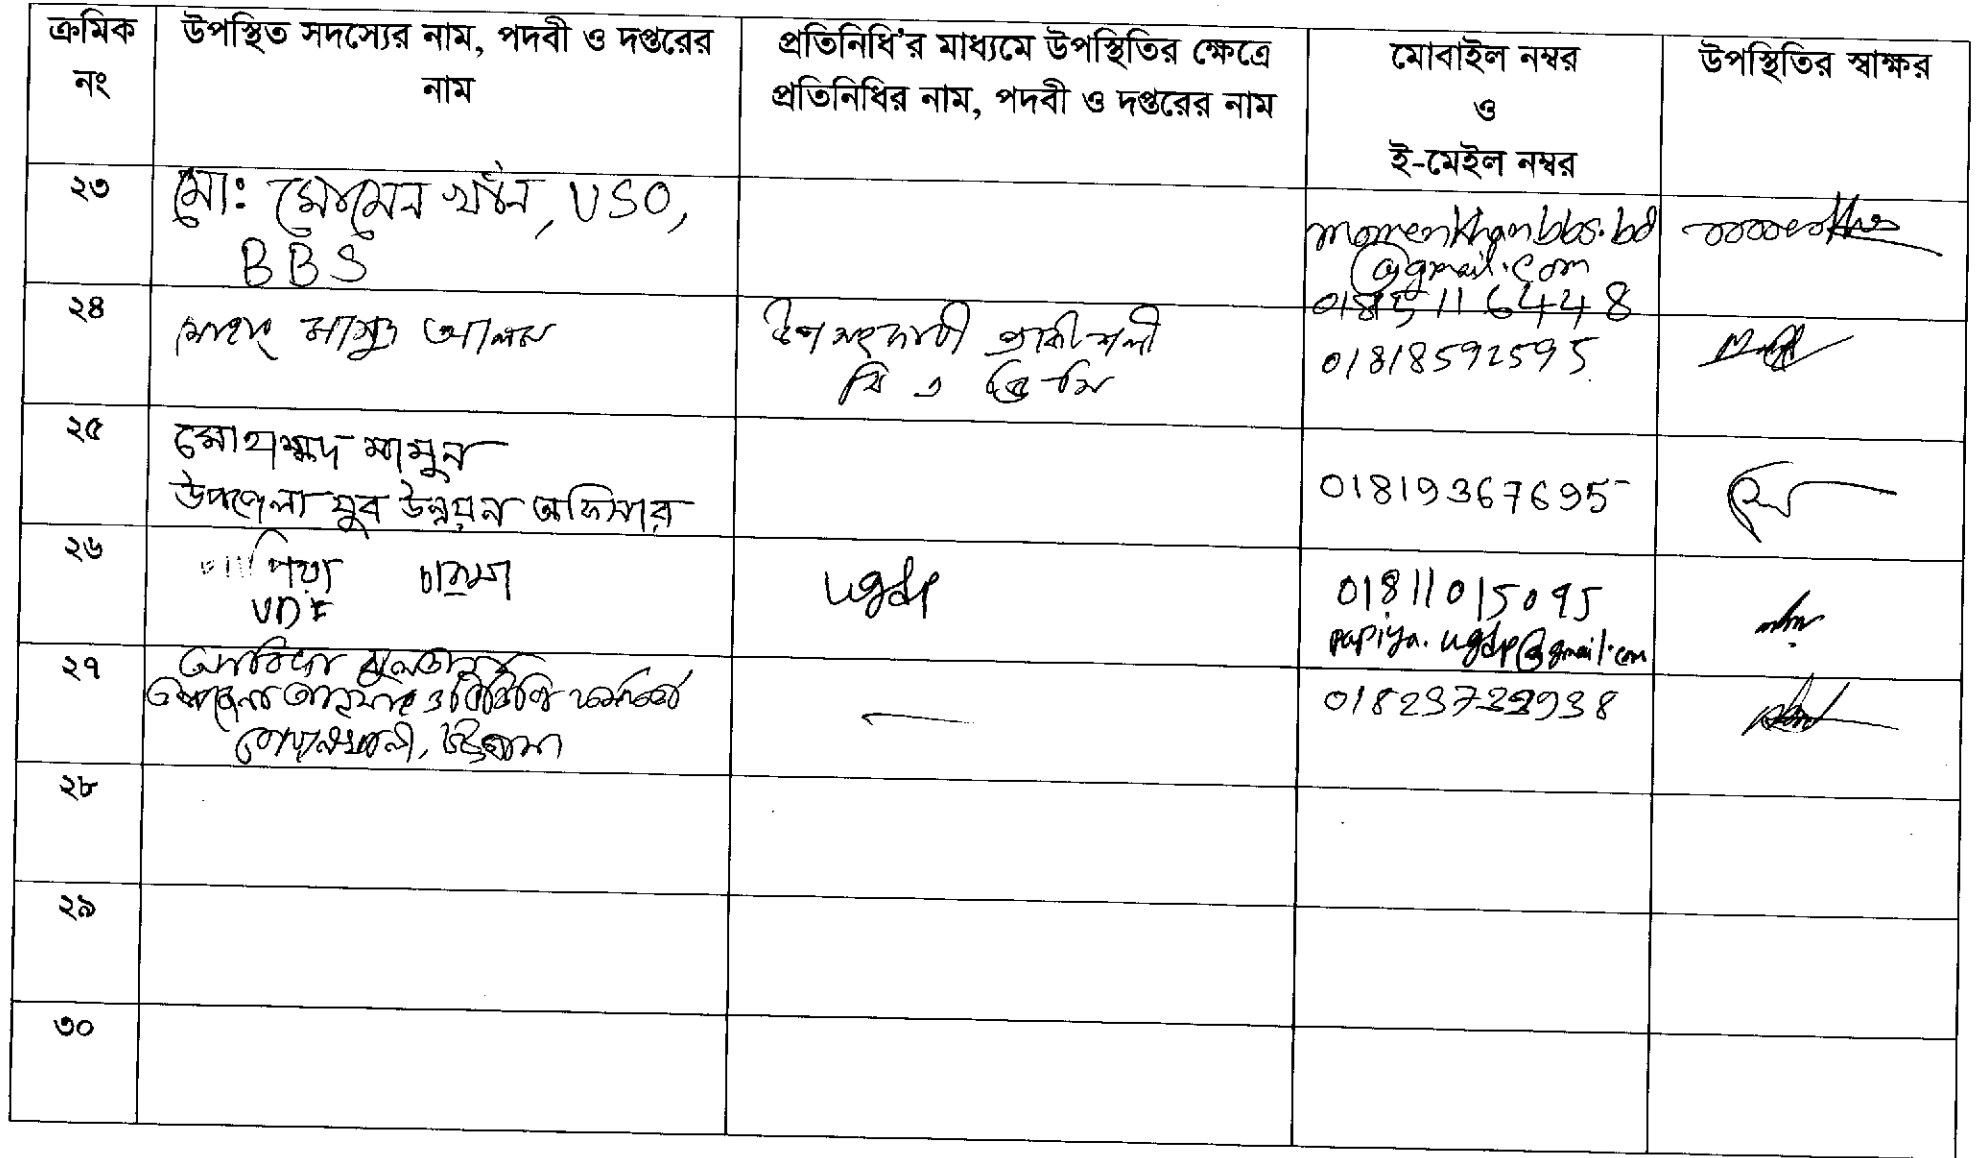 ক্রমিক নং
উপস্থিত সদস্যের নাম, পদবী ও দপ্তরের নাম
প্রতিনিধি'র মাধ্যমে উপস্থিতির ক্ষেত্রে প্রতিনিধির নাম, পদবী ও দপ্তরের নাম
মোবাইল নম্বর
ও
ই-মেইল নম্বর
উপস্থিতির স্বাক্ষর
২৩
মো: মোমেন খাঁন, USO,
BBS
momenkhanbbs.bd
@gmail.com
২৪
মাসুদ আলম
উপ সহকারী প্রকৌশলী
বি এ ডি সি
01818592595
২৫
মোহাম্মদ মামুন
উপজেলা যুব উন্নয়ন অফিসার
01819367695
২৬
পাপিয়া চাকমা
UDF
ugdp
01811015095
papiya.ugdp@gmail.com
২৭
সুলতানা
উপজেলা আনসার ও ভিডিপি কর্মকর্তা
বোয়ালখালী, চট্টগ্রাম
২৮
২৯
৩০